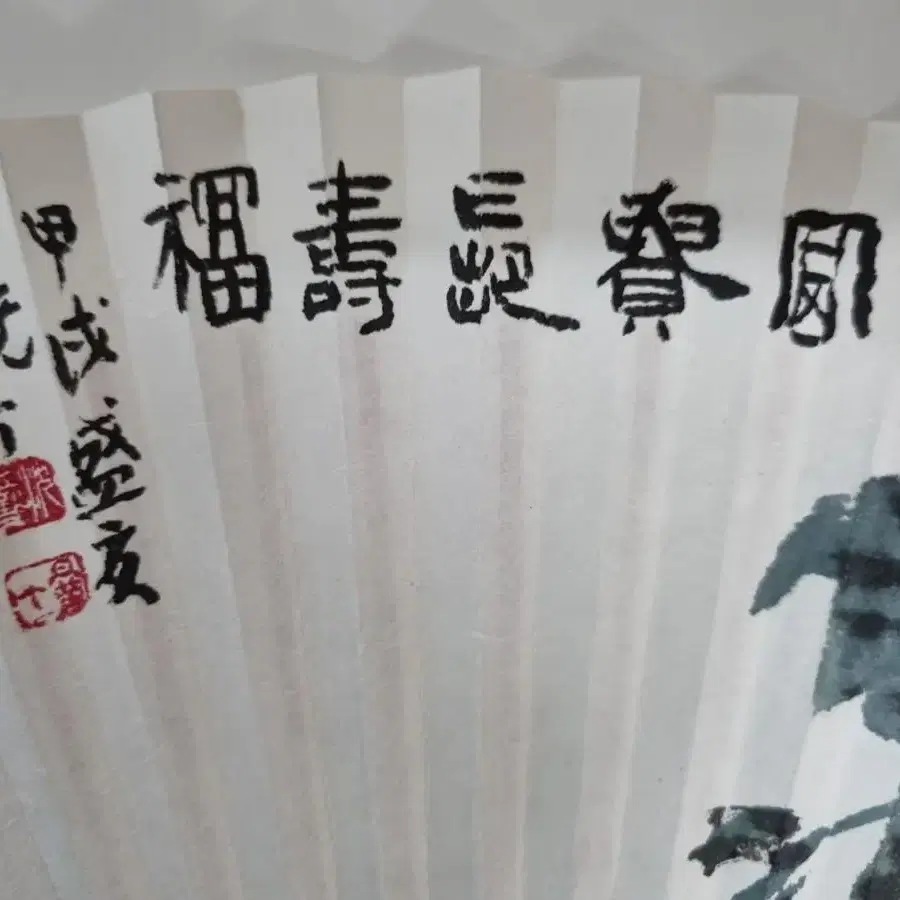 富貴長壽福
甲戌盛夏